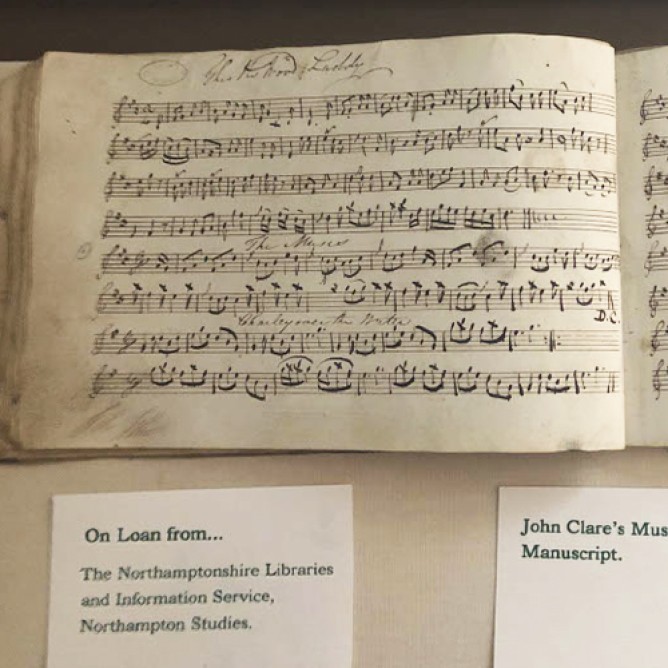 The Muses
D.C.
Charley over the Water
On Loan from...
The Northamptonshire Libraries
and Information Service,
Northampton Studies.
John Clare's Mus
Manuscript.